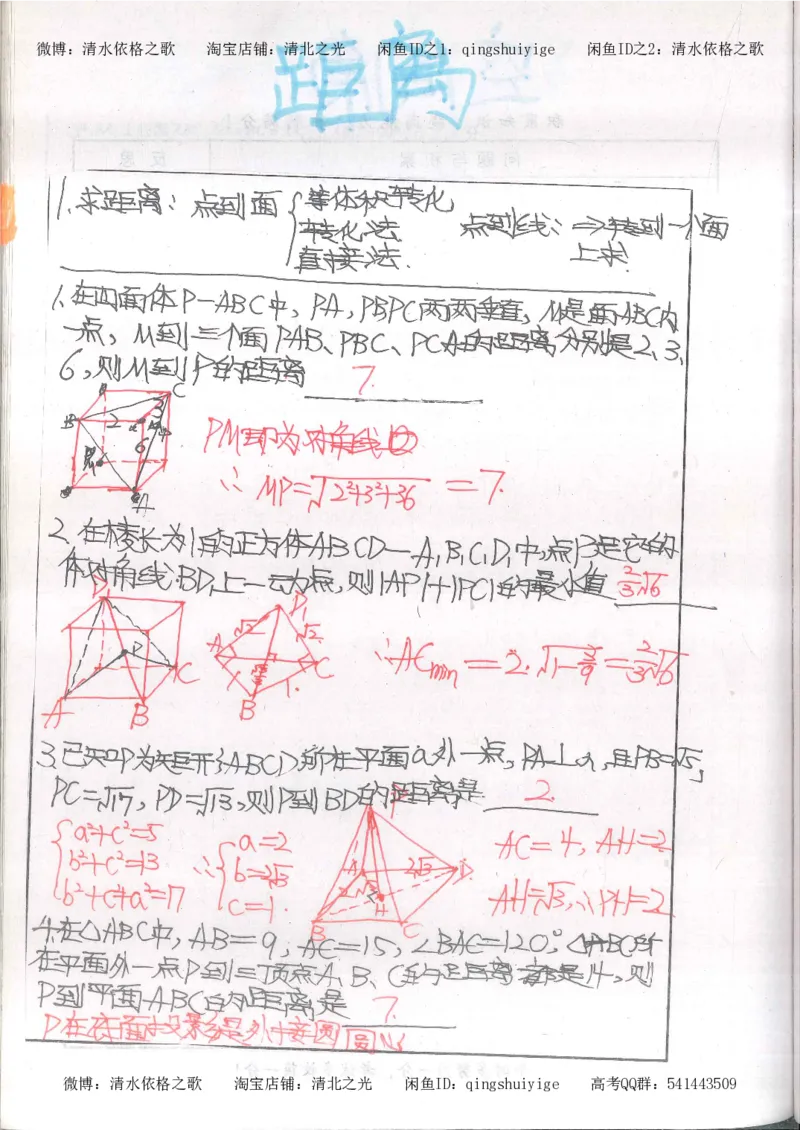 微博：清水依格之歌 淘宝店铺：清北之光 闲鱼ID之1：qingshuiyige 闲鱼ID之2：清水依格之歌
距离
1.求距离：点到面{等体积转化
转化法
直接法.
点到线：⇒转到一个面
上求.
1.在四面体P-ABC中，PA，PBPC两两垂直，M是面ABC内
一点，M到三个面PAB、PBC、PCA的距离分别是2、3、
6，则M到P的距离 7.
PM即为对角线
∴ MP=√2²+3²+36 =7.
2.在棱长为1的正方体ABCD—A₁B₁C₁D₁中，点P是它的
体对角线BD₁上一动点，则|AP|+|PC|的最小值 2/3√6
∴ACmin=2·√1-3/9=2/3√6
3.已知P为矩形ABCD所在平面α外一点，PA⊥α，且PB=√5，
PC=√17，PD=√13，则P到BD的距离是 2.
{a²+c²=5
b²+c²=13
b²+c²+a²=17
∴{a=2
b=2√3
c=1.
AC=4，AH=2
AH=√3，∴PH=2
4.在△ABC中，AB=9，AC=15，∠BAC=120°，△ABC所
在平面外一点P到三顶点A、B、C的距离都是14，则
P到平面ABC的距离是 7.
P在底面投影是外接圆圆心
微博：清水依格之歌 淘宝店铺：清北之光 闲鱼ID：qingshuiyige 高考QQ群：541443509